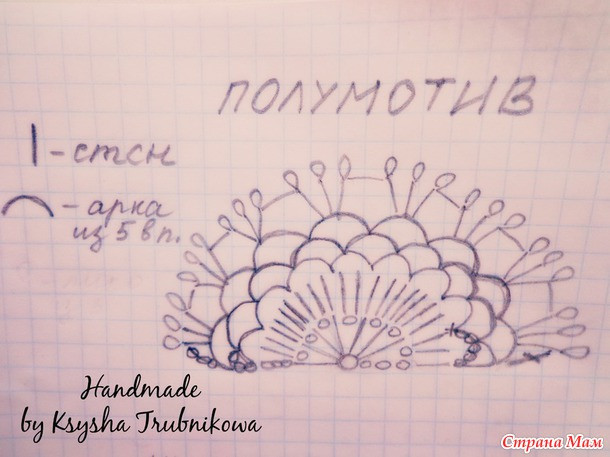 ПОЛУМОТИВ
| - стсн
⌒ - арка
из 5 в п.
Handmade
by Ksysha Trubnikowa
Страна Мам